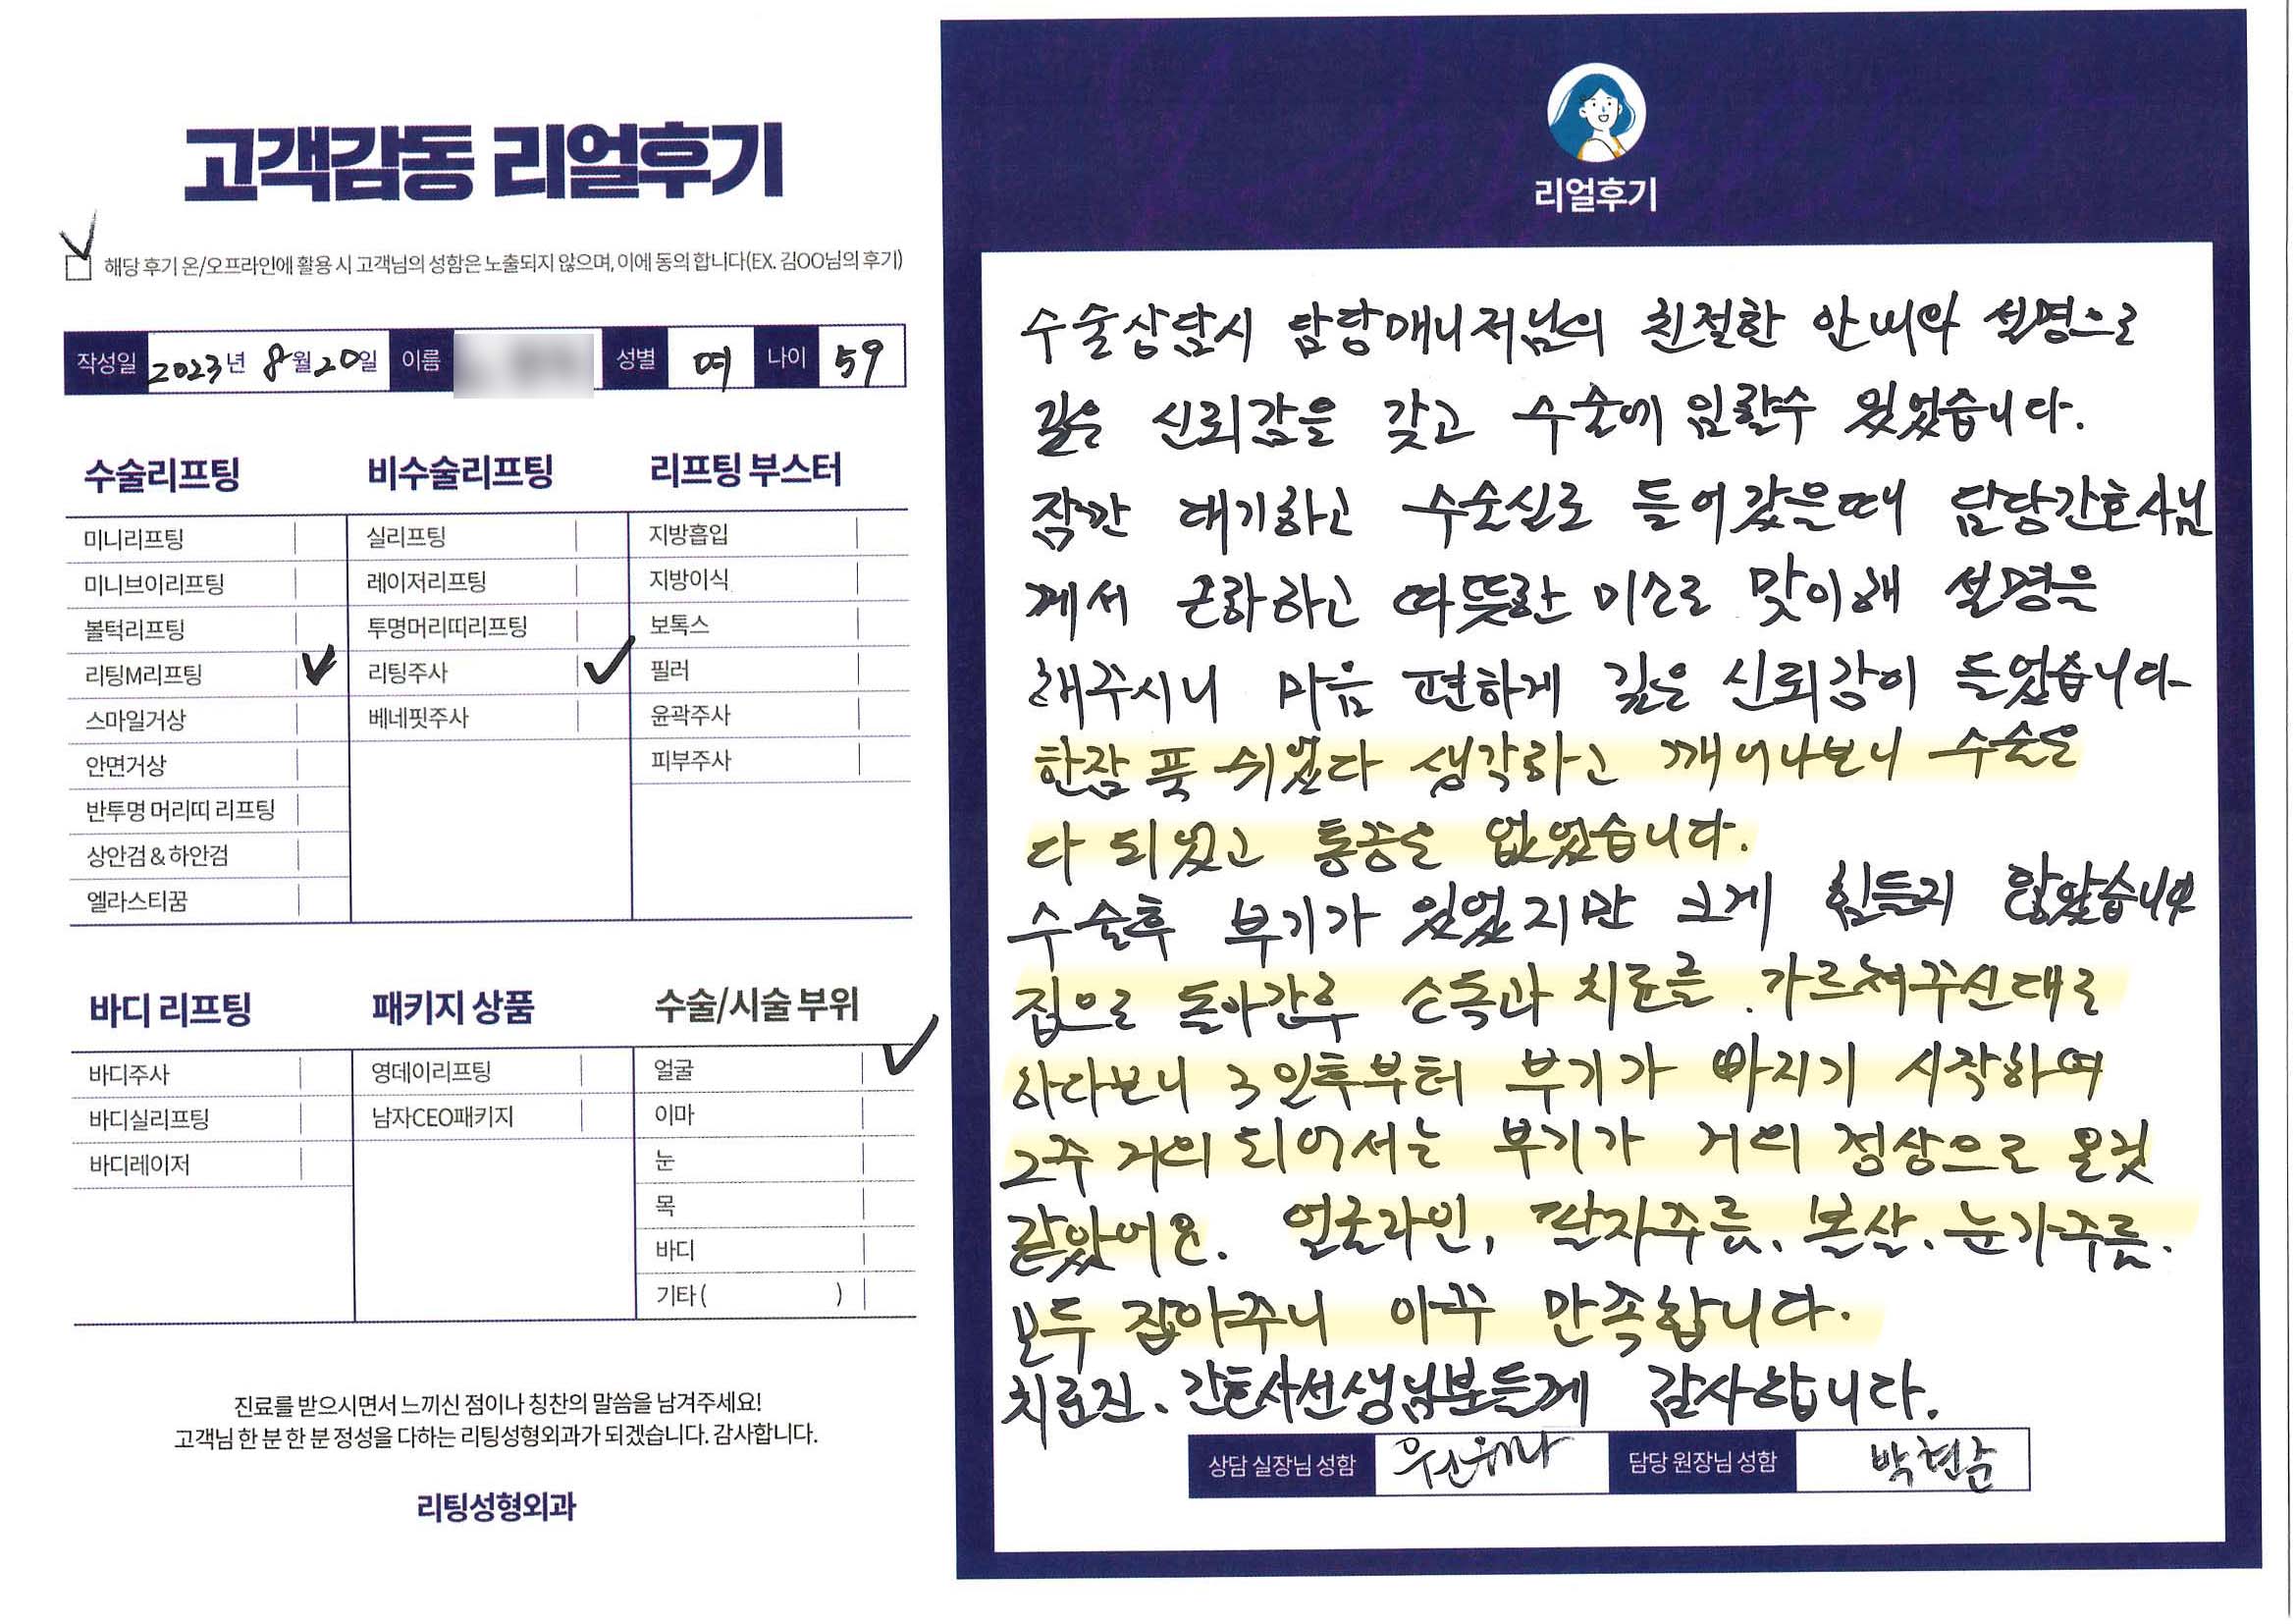 고객감동 리얼후기
해당 후기 온/오프라인에 활용 시 고객님의 성함은 노출되지 않으며, 이에 동의 합니다(EX. 김OO님의 후기)
작성일 2023년 8월 20일 이름 성별 여 나이 59
수술리프팅 비수술리프팅 리프팅 부스터
미니리프팅 실리프팅 지방흡입
미니브이리프팅 레이저리프팅 지방이식
볼턱리프팅 투명머리띠리프팅 보톡스
리팅M리프팅 리팅주사 필러
스마일거상 베네핏주사 윤곽주사
안면거상 피부주사
반투명 머리띠 리프팅
상안검 & 하안검
엘라스티꿈
바디 리프팅 패키지 상품 수술/시술 부위
바디주사 영데이리프팅 얼굴
바디실리프팅 남자CEO패키지 이마
바디레이저 눈
목
바디
기타 ( )
진료를 받으시면서 느끼신 점이나 칭찬의 말씀을 남겨주세요!
고객님 한 분 한 분 정성을 다하는 리팅성형외과가 되겠습니다. 감사합니다.
리팅성형외과
리얼후기
수술상담시 담당매니저님의 친절한 안내와 설명으로
깊은 신뢰감을 갖고 수술에 임할수 있었습니다.
잠깐 대기하고 수술실로 들어갔을때 담당간호사님
께서 온화하고 따뜻한 미소로 맞이해 설명을
해주시니 마음 편하게 깊은 신뢰감이 들었습니다
한잠 푹 쉬었다 생각하고 깨어나보니 수술은
다 되었고 통증은 없었습니다.
수술후 부기가 있었지만 크게 힘들지 않았습니다
집으로 돌아간후 소독과 치료를 가르쳐주신대로
하다보니 3일후부터 부기가 빠지기 시작하여
2주 거의 되어서는 부기가 거의 정상으로 온것
같았어요. 얼굴라인, 팔자주름, 볼살, 눈가주름,
모두 잡아주니 아주 만족합니다.
치료진, 간호사선생님분들께 감사합니다.
상담 실장님 성함 담당 원장님 성함 박현준